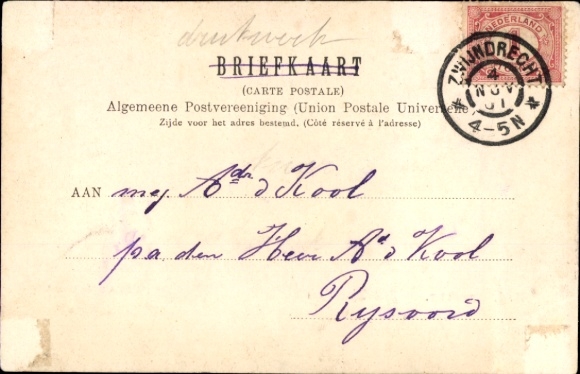 drukwerk
BRIEFKAART
(CARTE POSTALE)
Algemeene Postvereeniging (Union Postale Universelle)
Zijde voor het adres bestemd. (Côté réservé à l'adresse)
NEDERLAND
ZWIJNDRECHT
4
NOV
01
4-5N
AAN mej. Adr. d Kool
p/a den Heer Ad d Kool
Rysoord